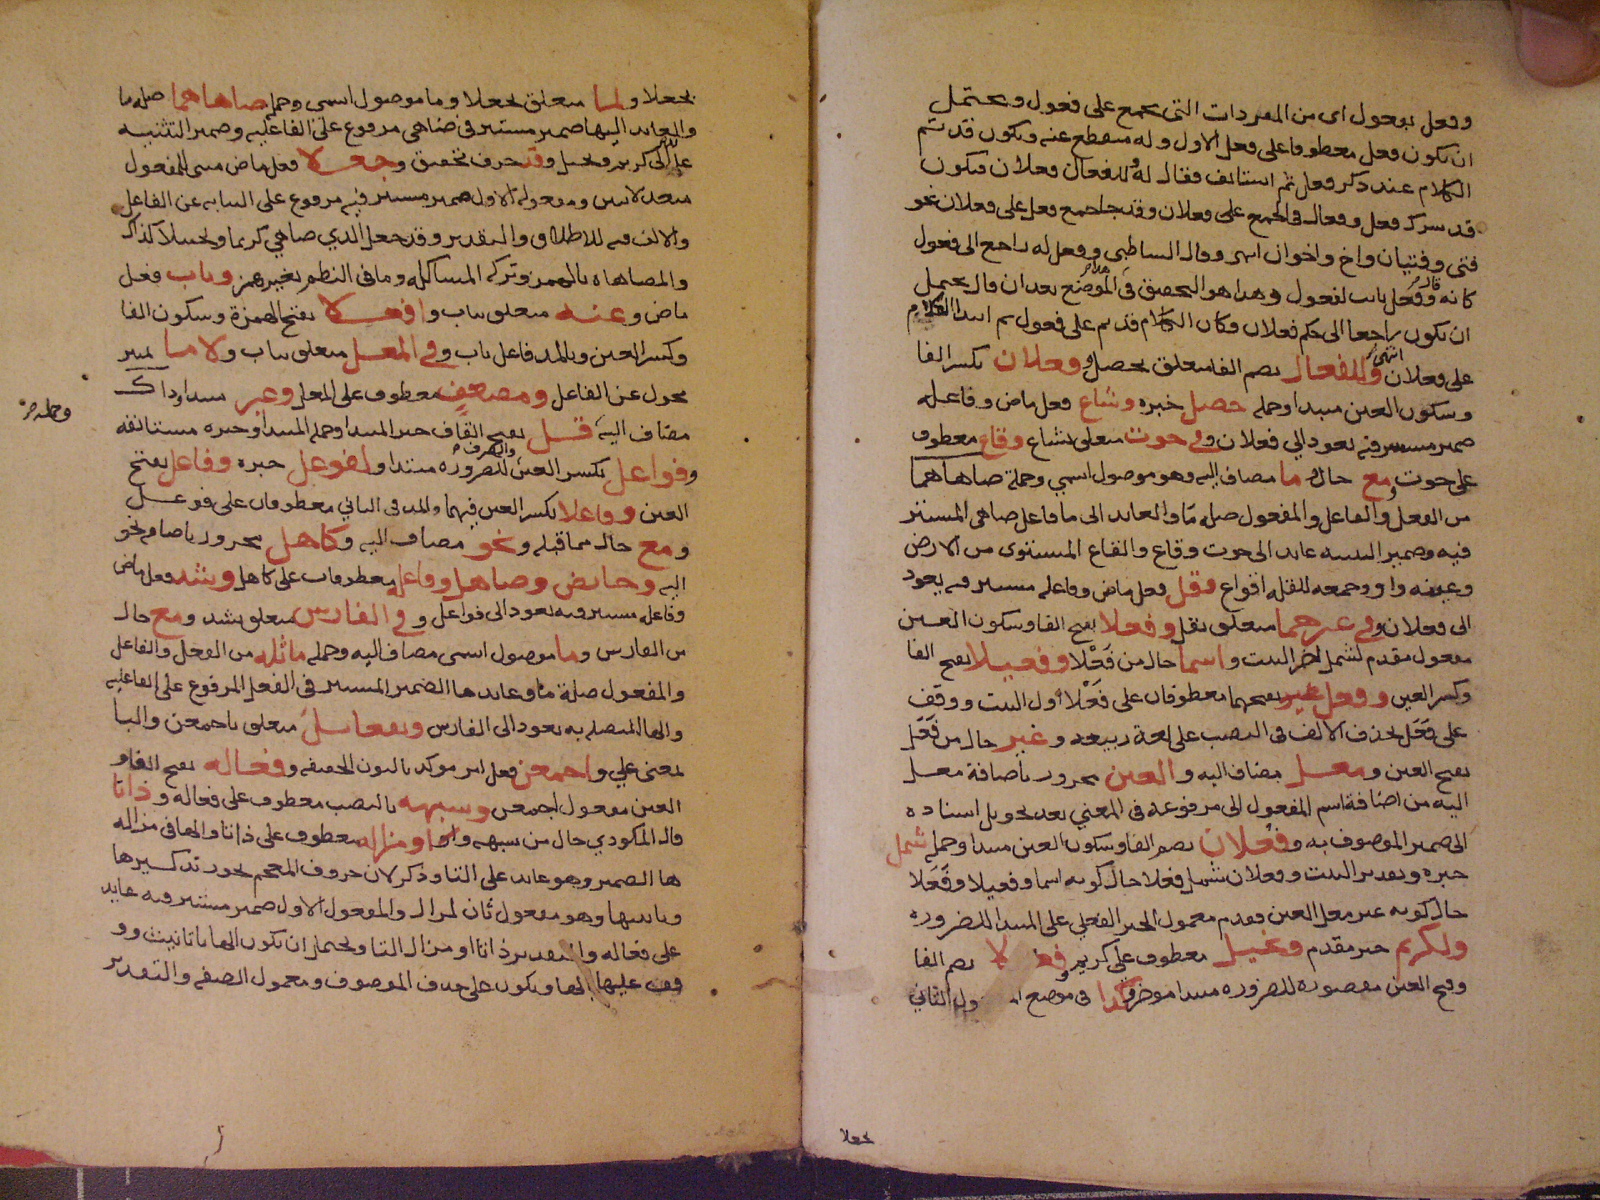 وفعل بفعول اى من المفردات التى يجمع على فعول ويحتمل
ان يكون فعل معطوفا على فعل الاول وله منقطع عنه ويكون قد تم
الكلام عند ذكر فعل ثم استانف فقال له وللفعال فعلان فيكون
قد شرك فعل وفعال فى الجمع على فعلان وقد جا جمع فعل على فعلان نحو
فتى وفتيان واخ واخوان انتهى وقال الشاطبى وفعل له راجع الى فعول
كانه قال وفعل بابت لفعول وهذا هو التحقيق فى هذا الموضع بعد ان قال يحتمل
ان يكون راجعا الى حكم فعلان وكان الكلام قد تم على فعول ثم ابتدا الكلام
على فعلان انتهى وللفعال بضم الفا متعلق بحصل وفعلان بكسر الفا
وسكون العين مبتدا وجملة حصل خبره وشاع فعل ماض وفاعله
ضمير مستتر فيه يعود الى فعلان وفي حوت متعلق بشاع وقاع معطوف
على حوت ومع حال وما مضاف اليه وهو موصول اسمي وجملة ضاهاهما
من الفعل والفاعل والمفعول صلة ما والعايد الى ما فاعل ضاهى المستتر
فيه وضمير التثنيه عايد الى حوت وقاع والقاع المستوى من الارض
وعينه واو وجمعه للقلة اقواع وقل فعل ماض وفاعله مستتر فيه يعود
الى فعلان وفي غيرهما متعلق بقل وفعلا بفتح الفا وسكون العين
مفعول مقدم لشمل اخر البيت واسما حال من فَعْلا وفعيلا بفتح الفا
وكسر العين وفعل غير بفتحهما معطوفان على فَعْلا اول البيت ووقف
على فَعَل بحذف الالف فى النصب على لغة ربيعه وغير حال من فَعَل
بفتح العين ومعل مضاف اليه والعين مجرور باضافة معل
اليه من اضافة اسم المفعول الى مرفوعه فى المعني بعد تحويل اسناده
الى ضمير الموصوف به وفعلان بضم الفا وسكون العين مبتدا وجملة شمل
خبره وتقدير البيت وفعلان شمل فعلا حال كونه اسما وفعيلا وفَعَلا
حال كونه غير معل العين فقدم معمول الخبر الفعلي على المبتدا للضروره
ولكريم خبر مقدم وبخيل معطوف على كريم وفعلا بضم الفا
وفتح العين مقصوره للضروره مبتدا موخر وكذا فى موضع ول الثاني
لجعلا
لجعلا ولما متعلق بجعلا وما موصول اسمى وجملة ضاهاهما صلة ما
والعايد اليها ضمير مستتر فى ضاهى مرفوع على الفاعليه وضمير التثنيه
على الى كريم وبخيل وقد حرف تحقيق وجعلا فعل ماض مبني للمفعول
متعد لاثنين ومفعوله الاول ضمير مستتر فيه مرفوع على النيابه عن الفاعل
والالف فيه للاطلاق والتقدير وقد جعل الذي ضاهي كريما وبخيلا كذلك
والمضاهاه بالهمز وتركه المشاكله وما فى النظم بغير همز وناب فعل
ماض وعنه متعلق بناب وافعلا بفتح الهمزة وسكون الفا
وكسر العين وبالمد فاعل ناب وفي المعل متعلق بناب ولاما تمييز
محول عن الفاعل ومضعف معطوف على المعل وغير مبتدا وذاك
وجملة
مضاف اليه وقل بفتح القاف خبر المبتدا وجملة المبتدا وخبره مستانفه
وفواعل بكسر العين والصرف للضروره مبتدا ولفوعل خبره وفاعل بفتح
العين وفاعلا بكسر العين فيهما والمد فى الثاني معطوفان على فوعل
ومع حال مما قبله ونحو مضاف اليه وكاهل مجرور باضافة نحو
اليه وحائض وصاهل وفاعله معطوفات على كاهل وشذ فعل ماض
وفاعله مستتر فيه يعود الى فواعل وفي الفارس متعلق بشذ ومع حال
من الفارس وما موصول اسمى مضاف اليه وجملة ماثله من الفعل والفاعل
والمفعول صلة ما وعايدها الضمير المستتر فى الفعل المرفوع على الفاعليه
والها المتصله به يعود الى الفارس وبفعائل متعلق باجمعن والبا
بمعنى علي واجمعن فعل امر موكد بالنون الخفيفه وفعاله بفتح الفا و
العين مفعول اجمعن وشبهه بالنصب معطوف على فعاله وذاتا
قال المكودي حال من شبهه واو مزاله معطوف على ذاتا والها فى مزاله
ها الضمير وهو عايد على التا وذكر لان حروف المعجم يجوز تذكيرها
وتانيثها وهو مفعول ثان لمزال والمفعول الاول ضمير مستتر فيه عايد
على فعاله والتقدير ذاتا او مزال التا ويحتمل ان يكون الها تا تانيث وو
قف عليها بالها ويكون على حذف الموصوف ومعمول الصفه والتقدير